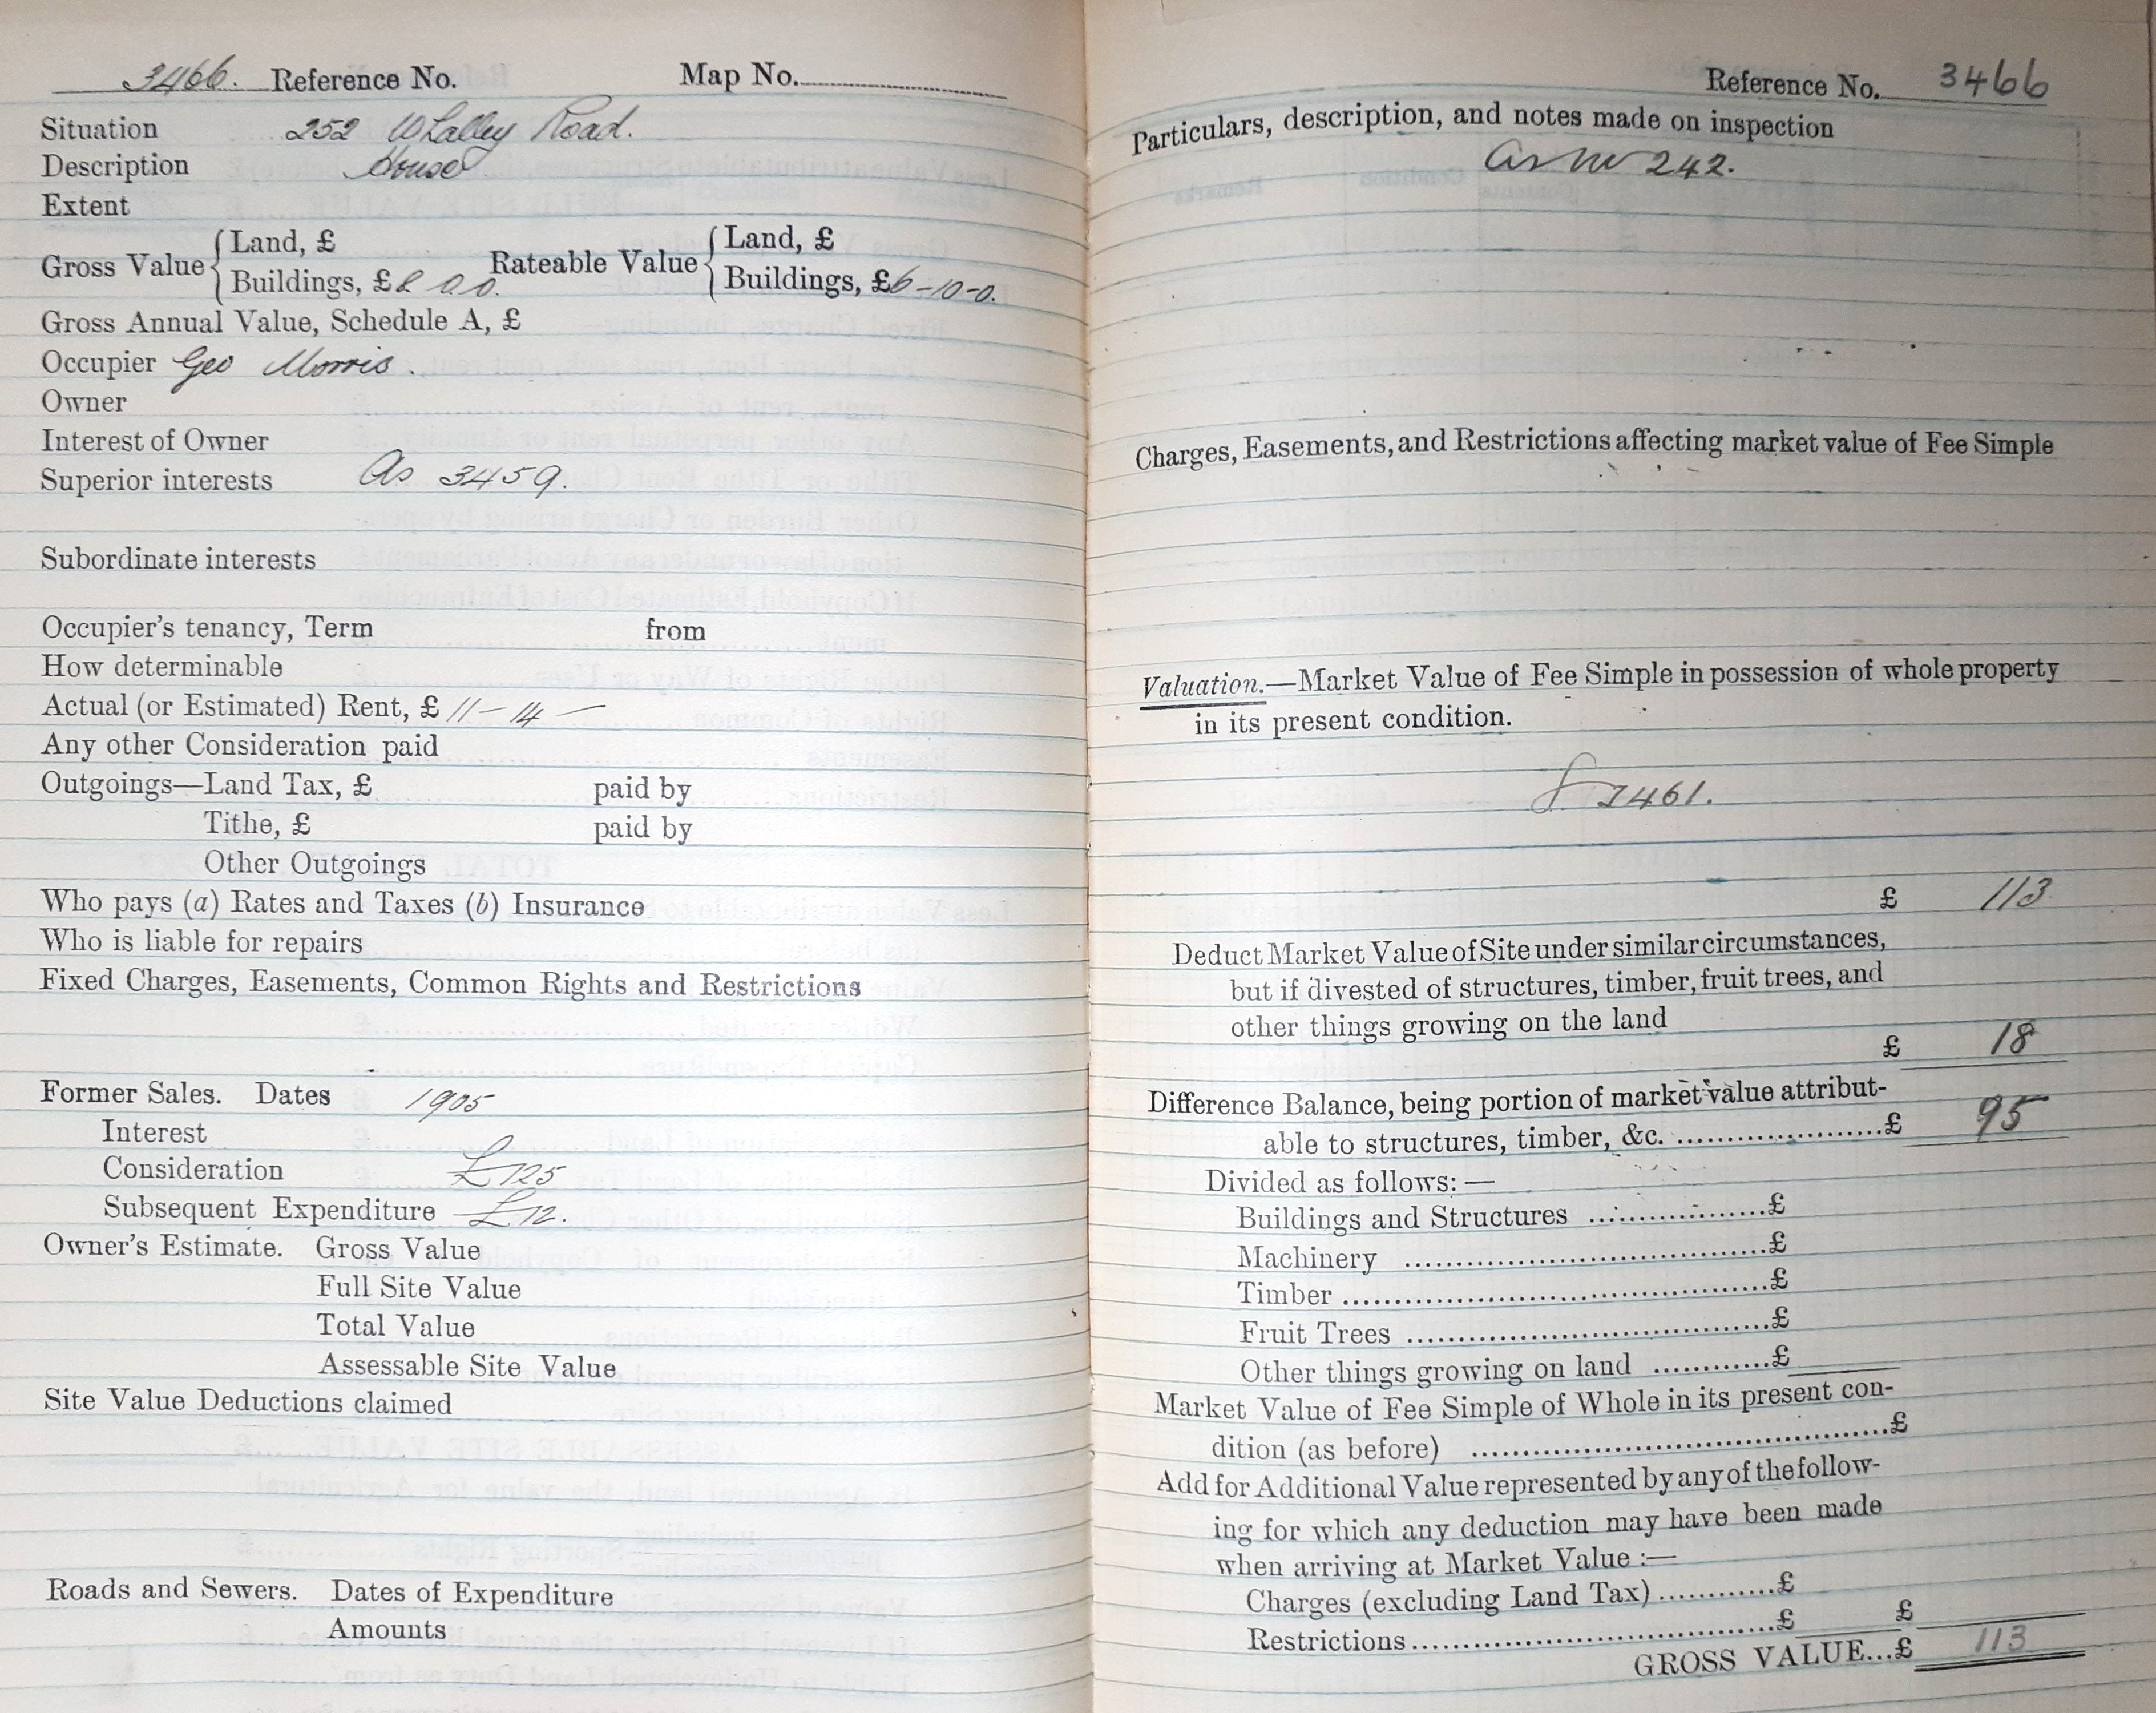 3466. Reference No. Map No.
Situation 252 Whalley Road.
Description House
Extent
Gross Value { Land, £ Rateable Value { Land, £
Buildings, £8 0 0. Buildings, £6-10-0.
Gross Annual Value, Schedule A, £
Occupier Geo Morris.
Owner
Interest of Owner
Superior interests As 3459.
Subordinate interests
Occupier's tenancy, Term from
How determinable
Actual (or Estimated) Rent, £ 11-14-
Any other Consideration paid
Outgoings—Land Tax, £ paid by
Tithe, £ paid by
Other Outgoings
Who pays (a) Rates and Taxes (b) Insurance
Who is liable for repairs
Fixed Charges, Easements, Common Rights and Restrictions
Former Sales. Dates 1905
Interest
Consideration £125
Subsequent Expenditure £12.
Owner's Estimate. Gross Value
Full Site Value
Total Value
Assessable Site Value
Site Value Deductions claimed
Roads and Sewers. Dates of Expenditure
Amounts
Reference No. 3466
Particulars, description, and notes made on inspection
As no 242.
Charges, Easements, and Restrictions affecting market value of Fee Simple
Valuation.—Market Value of Fee Simple in possession of whole property
in its present condition.
3461.
£ 113
Deduct Market Value of Site under similar circumstances,
but if divested of structures, timber, fruit trees, and
other things growing on the land
£ 18
Difference Balance, being portion of market value attribut-
able to structures, timber, &c. ......................£ 95
Divided as follows:—
Buildings and Structures ..................£
Machinery ....................................£
Timber ..........................................£
Fruit Trees ....................................£
Other things growing on land ............£
Market Value of Fee Simple of Whole in its present con-
dition (as before) ..........................................£
Add for Additional Value represented by any of the follow-
ing for which any deduction may have been made
when arriving at Market Value:—
Charges (excluding Land Tax)............£
Restrictions....................................£ £
GROSS VALUE...£ 113